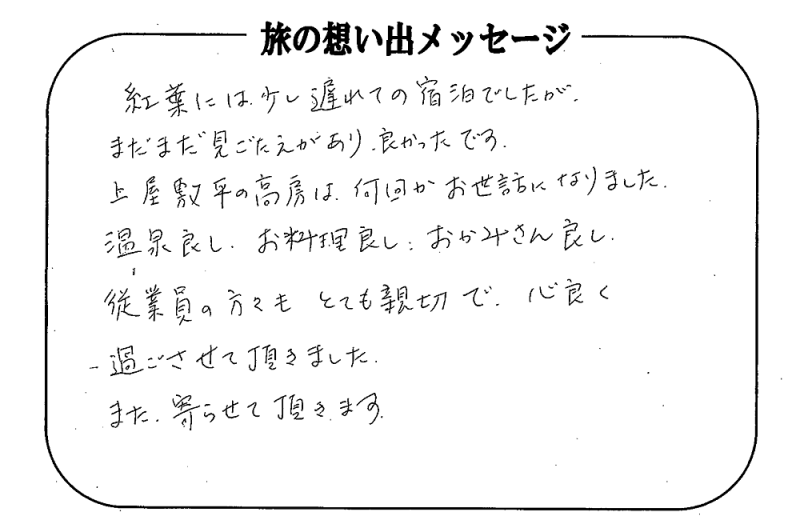 旅の想い出メッセージ
紅葉には少し遅れての宿泊でしたが、
まだまだ見ごたえがあり、良かったです。
上屋敷平の高房は、何回かお世話になりました。
温泉良し、お料理良し、おかみさん良し、
従業員の方々も とても親切で、心良く
過ごさせて頂きました。
また、寄らせて頂きます。